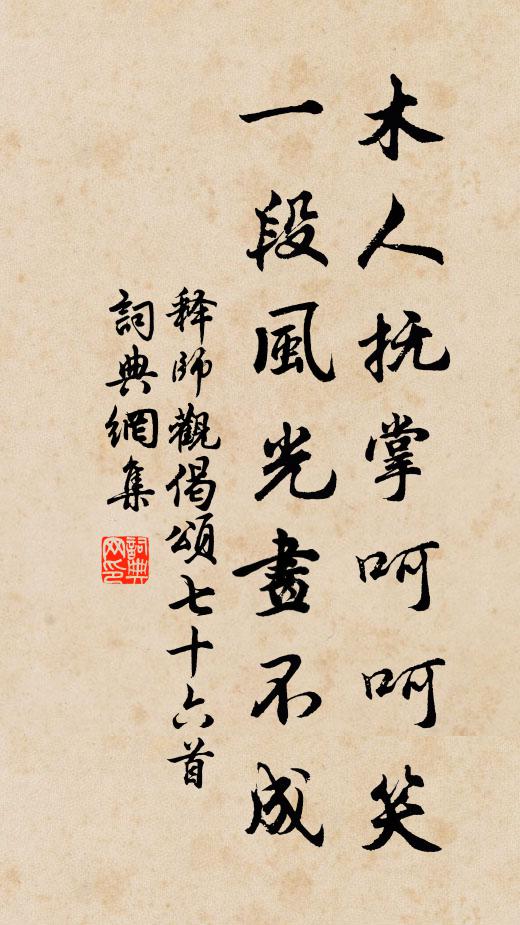 木人抚掌呵呵笑
一段風光畫不成
释師觀偈頌七十六首
詞典網集
詞典网印